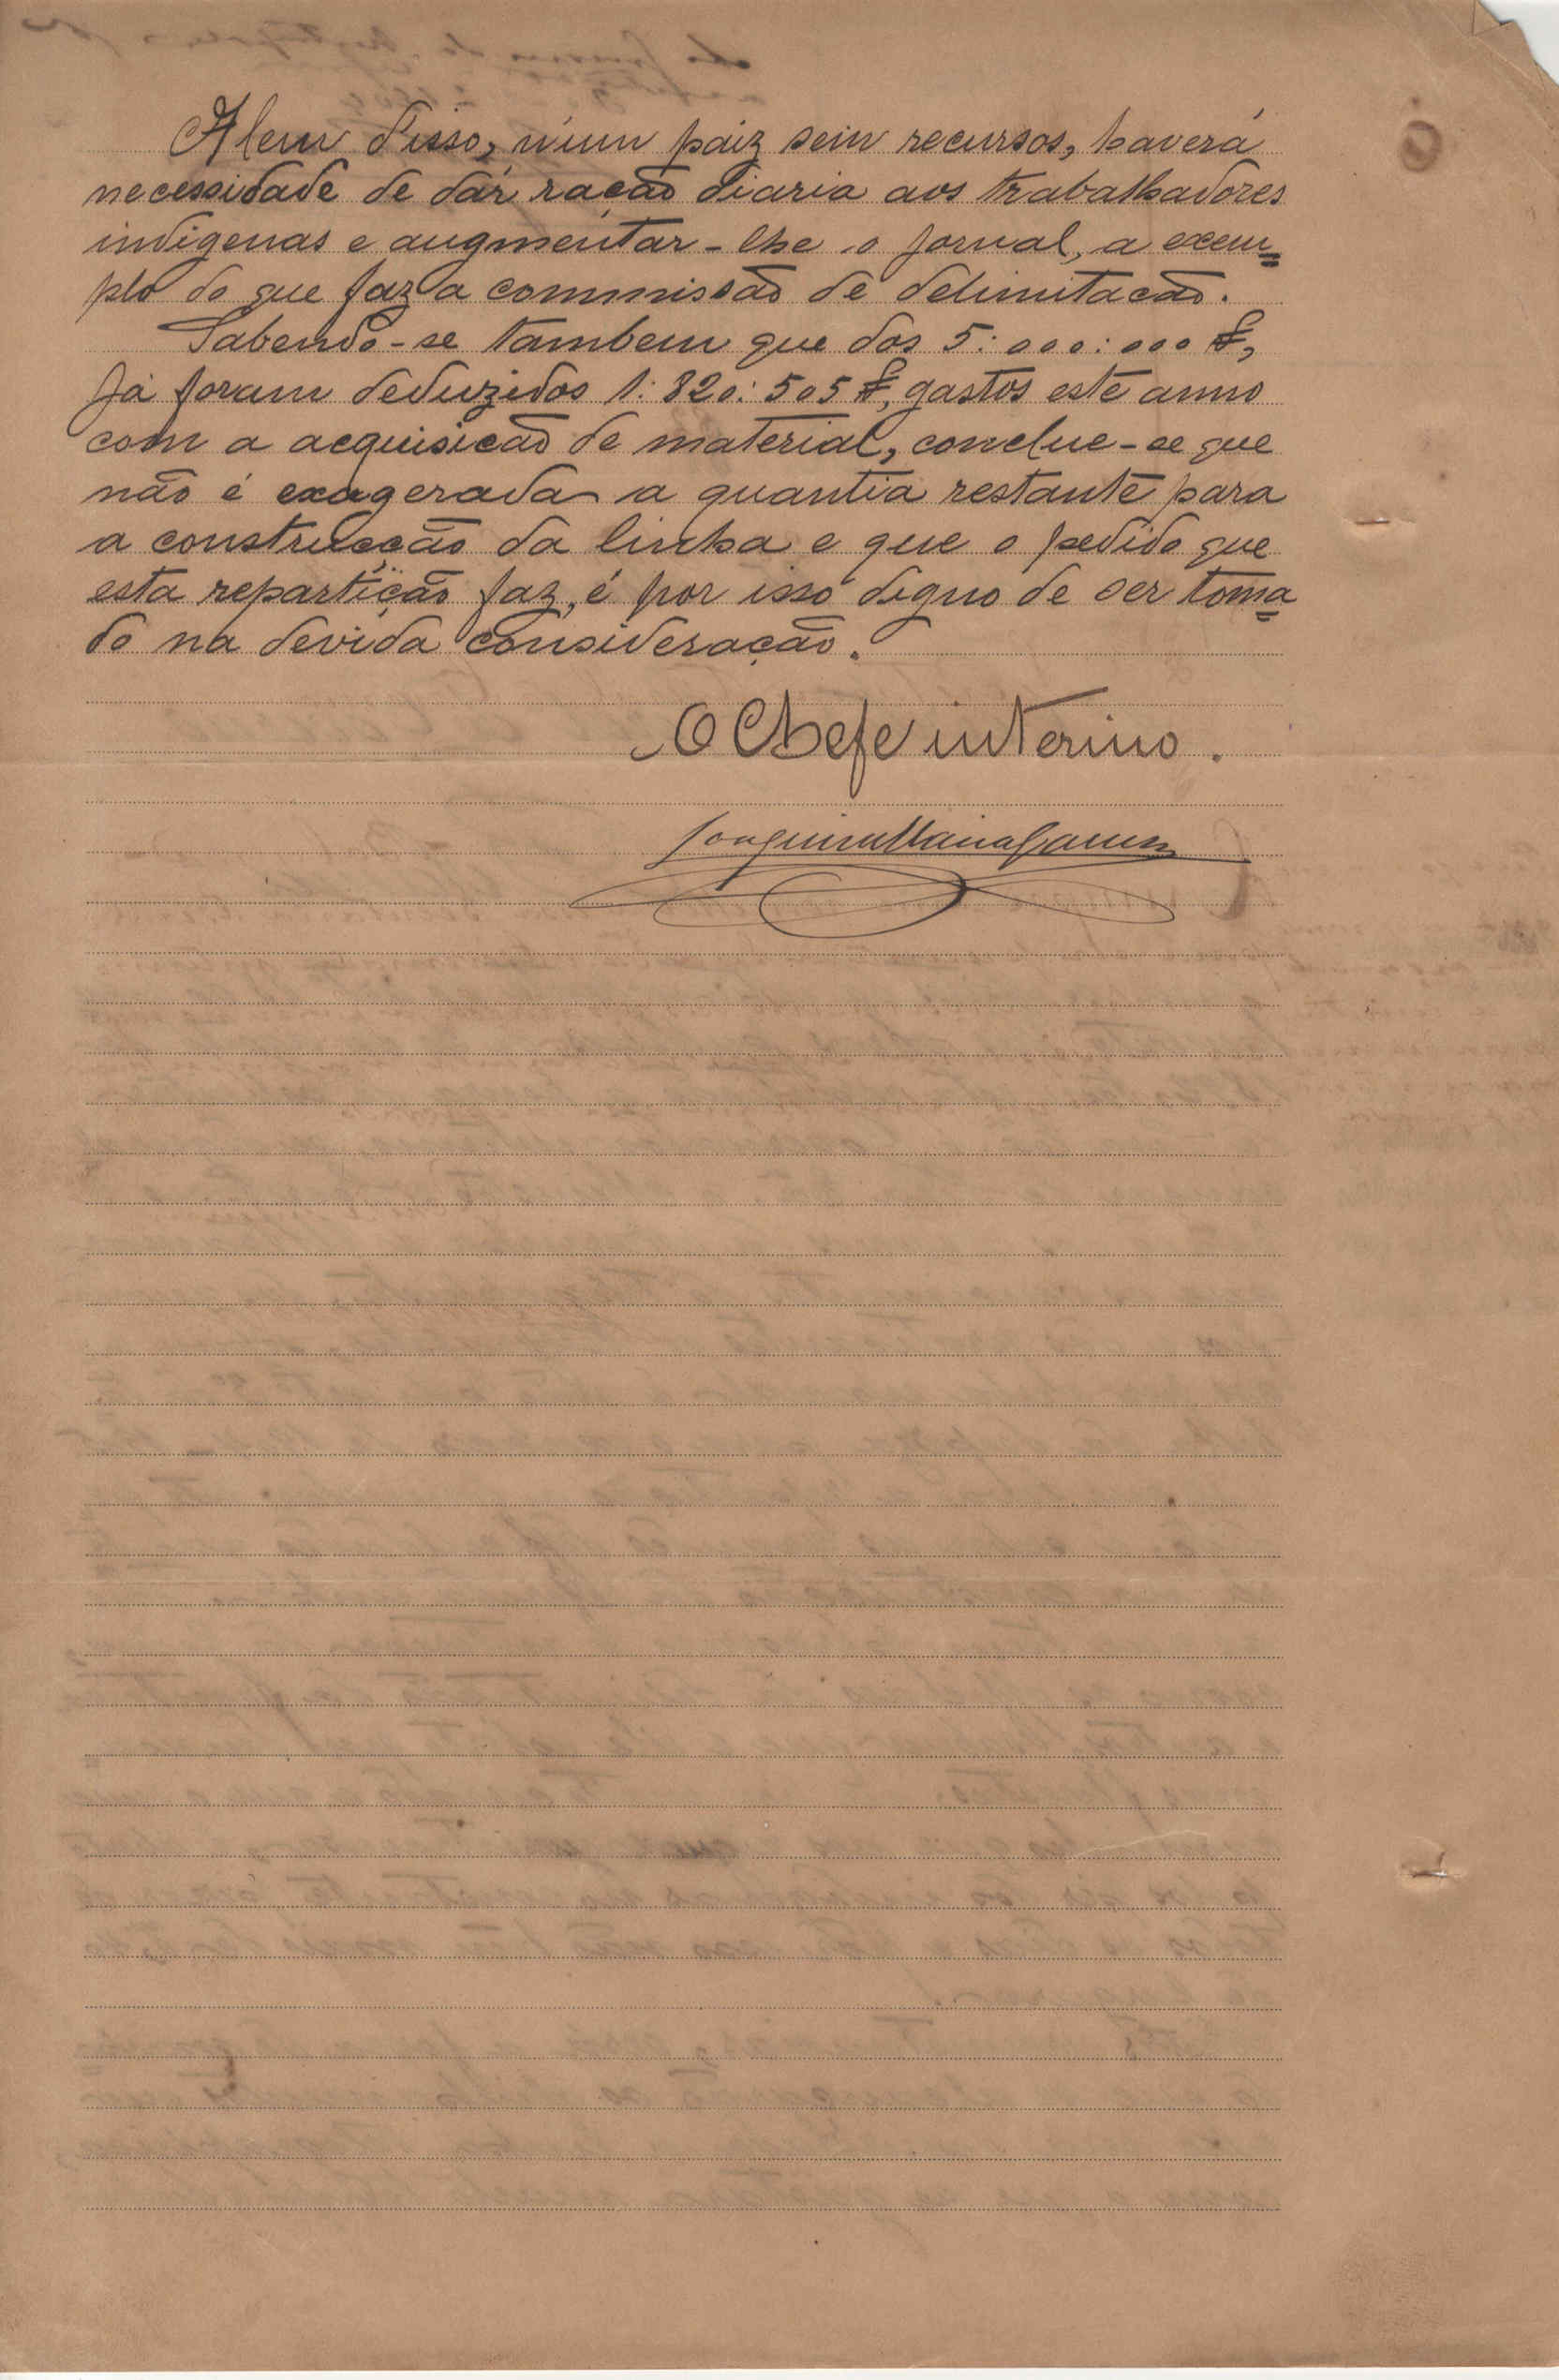 Alem d'isso, n'um páiz sem recursos, haverá
necessidade de dár ração diaria aos trabalhadores
indigenas e augmentar-lhe o jornal, a exem=
plo do que faz a commissão de delimitação.
Sabendo-se tambem que dos 5:000:000 ₤,
já foram deduzidos 1:820:505 ₤, gastos este anno
com a acquisicão de material, conclue-se que
não é exagerada a quantia restante para
a construcção da linha e que o pedido que
esta repartição faz, é por isso digno de ser toma=
do na devida consideração.
O Chefe interino.
Joaquim